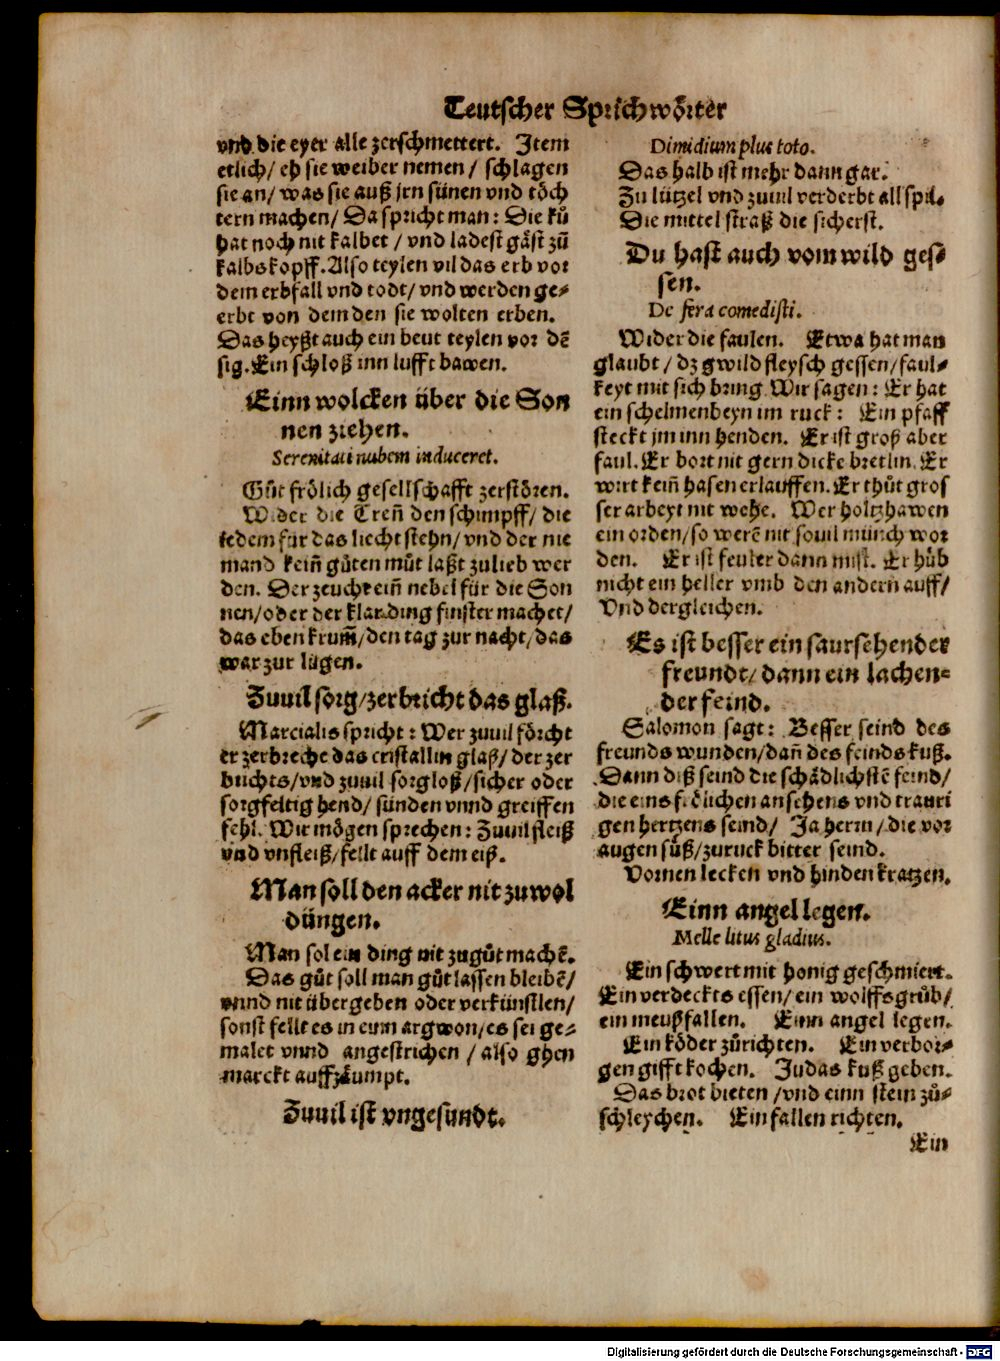 Teutscher Sprichwörter
vnd die eyer alle zerschmettert. Item
etlich/ eh sie weiber nemen/ schlagen
sie an/ was sie auß jrn sünen vnd töch
tern machen/ Da spricht man: Die ků
hat noch nit kalbet/ vnd ladest gäst zů
kalbskopff. Also teylen vil das erb vor
dem erbfall vnd todt/ vnd werden ge-
erbt von dem den sie wolten erben.
Das heyßt auch ein beut teylen vor dē
sig. Ein schloß inn lufft bawen.
Einn wolcken über die Son
nen ziehen.
Serenitati nubem induceret.
Gůt frölich gesellschafft zerstören.
Wider die Treñ den schimpff/ die
iedem für das liecht stehn/ vnd der nie
mand keiñ gůten můt laßt zulieb wer
den. Der zeucht eiñ nebel für die Son
nen/ oder der klar ding finster machet/
das eben krum̄/ den tag zur nacht/ das
war zur lügen.
Zuuil sorg/ zerbricht das glaß.
Marcialis spricht: Wer zuuil förcht
er zerbreche das cristallin glaß/ der zer
brichts/ vnd zuuil sorgloß/ sicher oder
sorgfeltig hend/ sünden vnnd greiffen
fehl. Wir mögen sprechen: Zuuil fleiß
vnd vnfleiß/ fellt auff dem eiß.
Man soll den acker nit zuwol
düngen.
Man sol ein ding nit zugůt machē.
Das gůt soll man gůt lassen bleibē/
vnnd nit übergeben oder verkünstlen/
sonst fellt es in eum argwon/ es sei ge-
malet vnnd angestrichen/ also ghen
marckt auffzäumpt.
Zuuil ist vngesundt.
Dimidium plus toto.
Das halb ist mehr dann gar.
Zu lützel vnd zuuil verderbt all spil.
Die mittel straß die sicherst.
Du hast auch vom wild ges-
sen.
De fera comedisti.
Wider die faulen. Etwa hat man
glaubt/ dz gwild fleysch gessen/ faul-
keyt mit sich bring. Wir sagen: Er hat
ein schelmenbeyn im ruck: Ein pfaff
steckt jm inn henden. Er ist groß aber
faul. Er bort nit gern dicke bretlin. Er
wirt keiñ hasen erlauffen. Er thůt gros
ser arbeyt nit wehe. Wer holtzhawen
ein orden/ so werē nit souil münch wor
den. Er ist feuler dann mist. Er hůb
nicht ein heller vmb den andern auff/
Vnd dergleichen.
Es ist besser ein saursehender
freundt/ dann ein lachen-
der feind.
Salomon sagt: Besser seind des
freunds wunden/ dañ des feinds kuß.
Dann diß seind die schädlichstē feind/
die eins frölichen ansehens vnd trauri
gen hertzens seind/ Ja herrn/ die vor
augen süß/ zuruck bitter seind.
Vornen lecken vnd hinden kratzen.
Einn angel legen.
Melle litus gladius.
Ein schwert mit honig geschmiert.
Ein verdeckts essen/ ein wolffsgrůb/
ein meußfallen. Einn angel legen.
Ein köder zůrichten. Ein verbor-
gen gifft kochen. Judas kuß geben.
Das brot bieten/ vnd einn stein zů-
schleychen. Ein fallen richten.
Ein
Digitalisierung gefördert durch die Deutsche Forschungsgemeinschaft - DFG